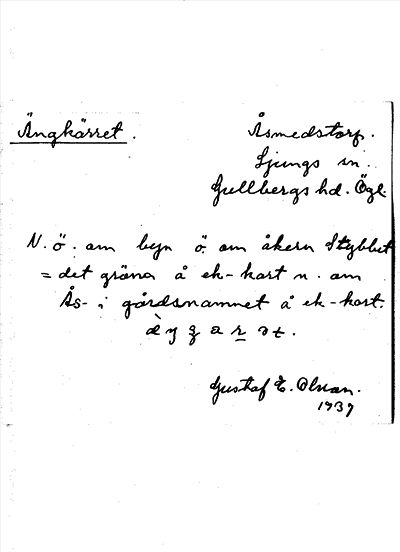 Ängkärret.
Åsmedstorp.
Ljungs sn.
Gullbergs hd. Ögl.
N. ö. om byn ö. om åkern Stybbet
= det gröna å ek-kart n. om
Ås- i gårdsnamnet å ek-kart.
Gustaf E. Olson.
1939